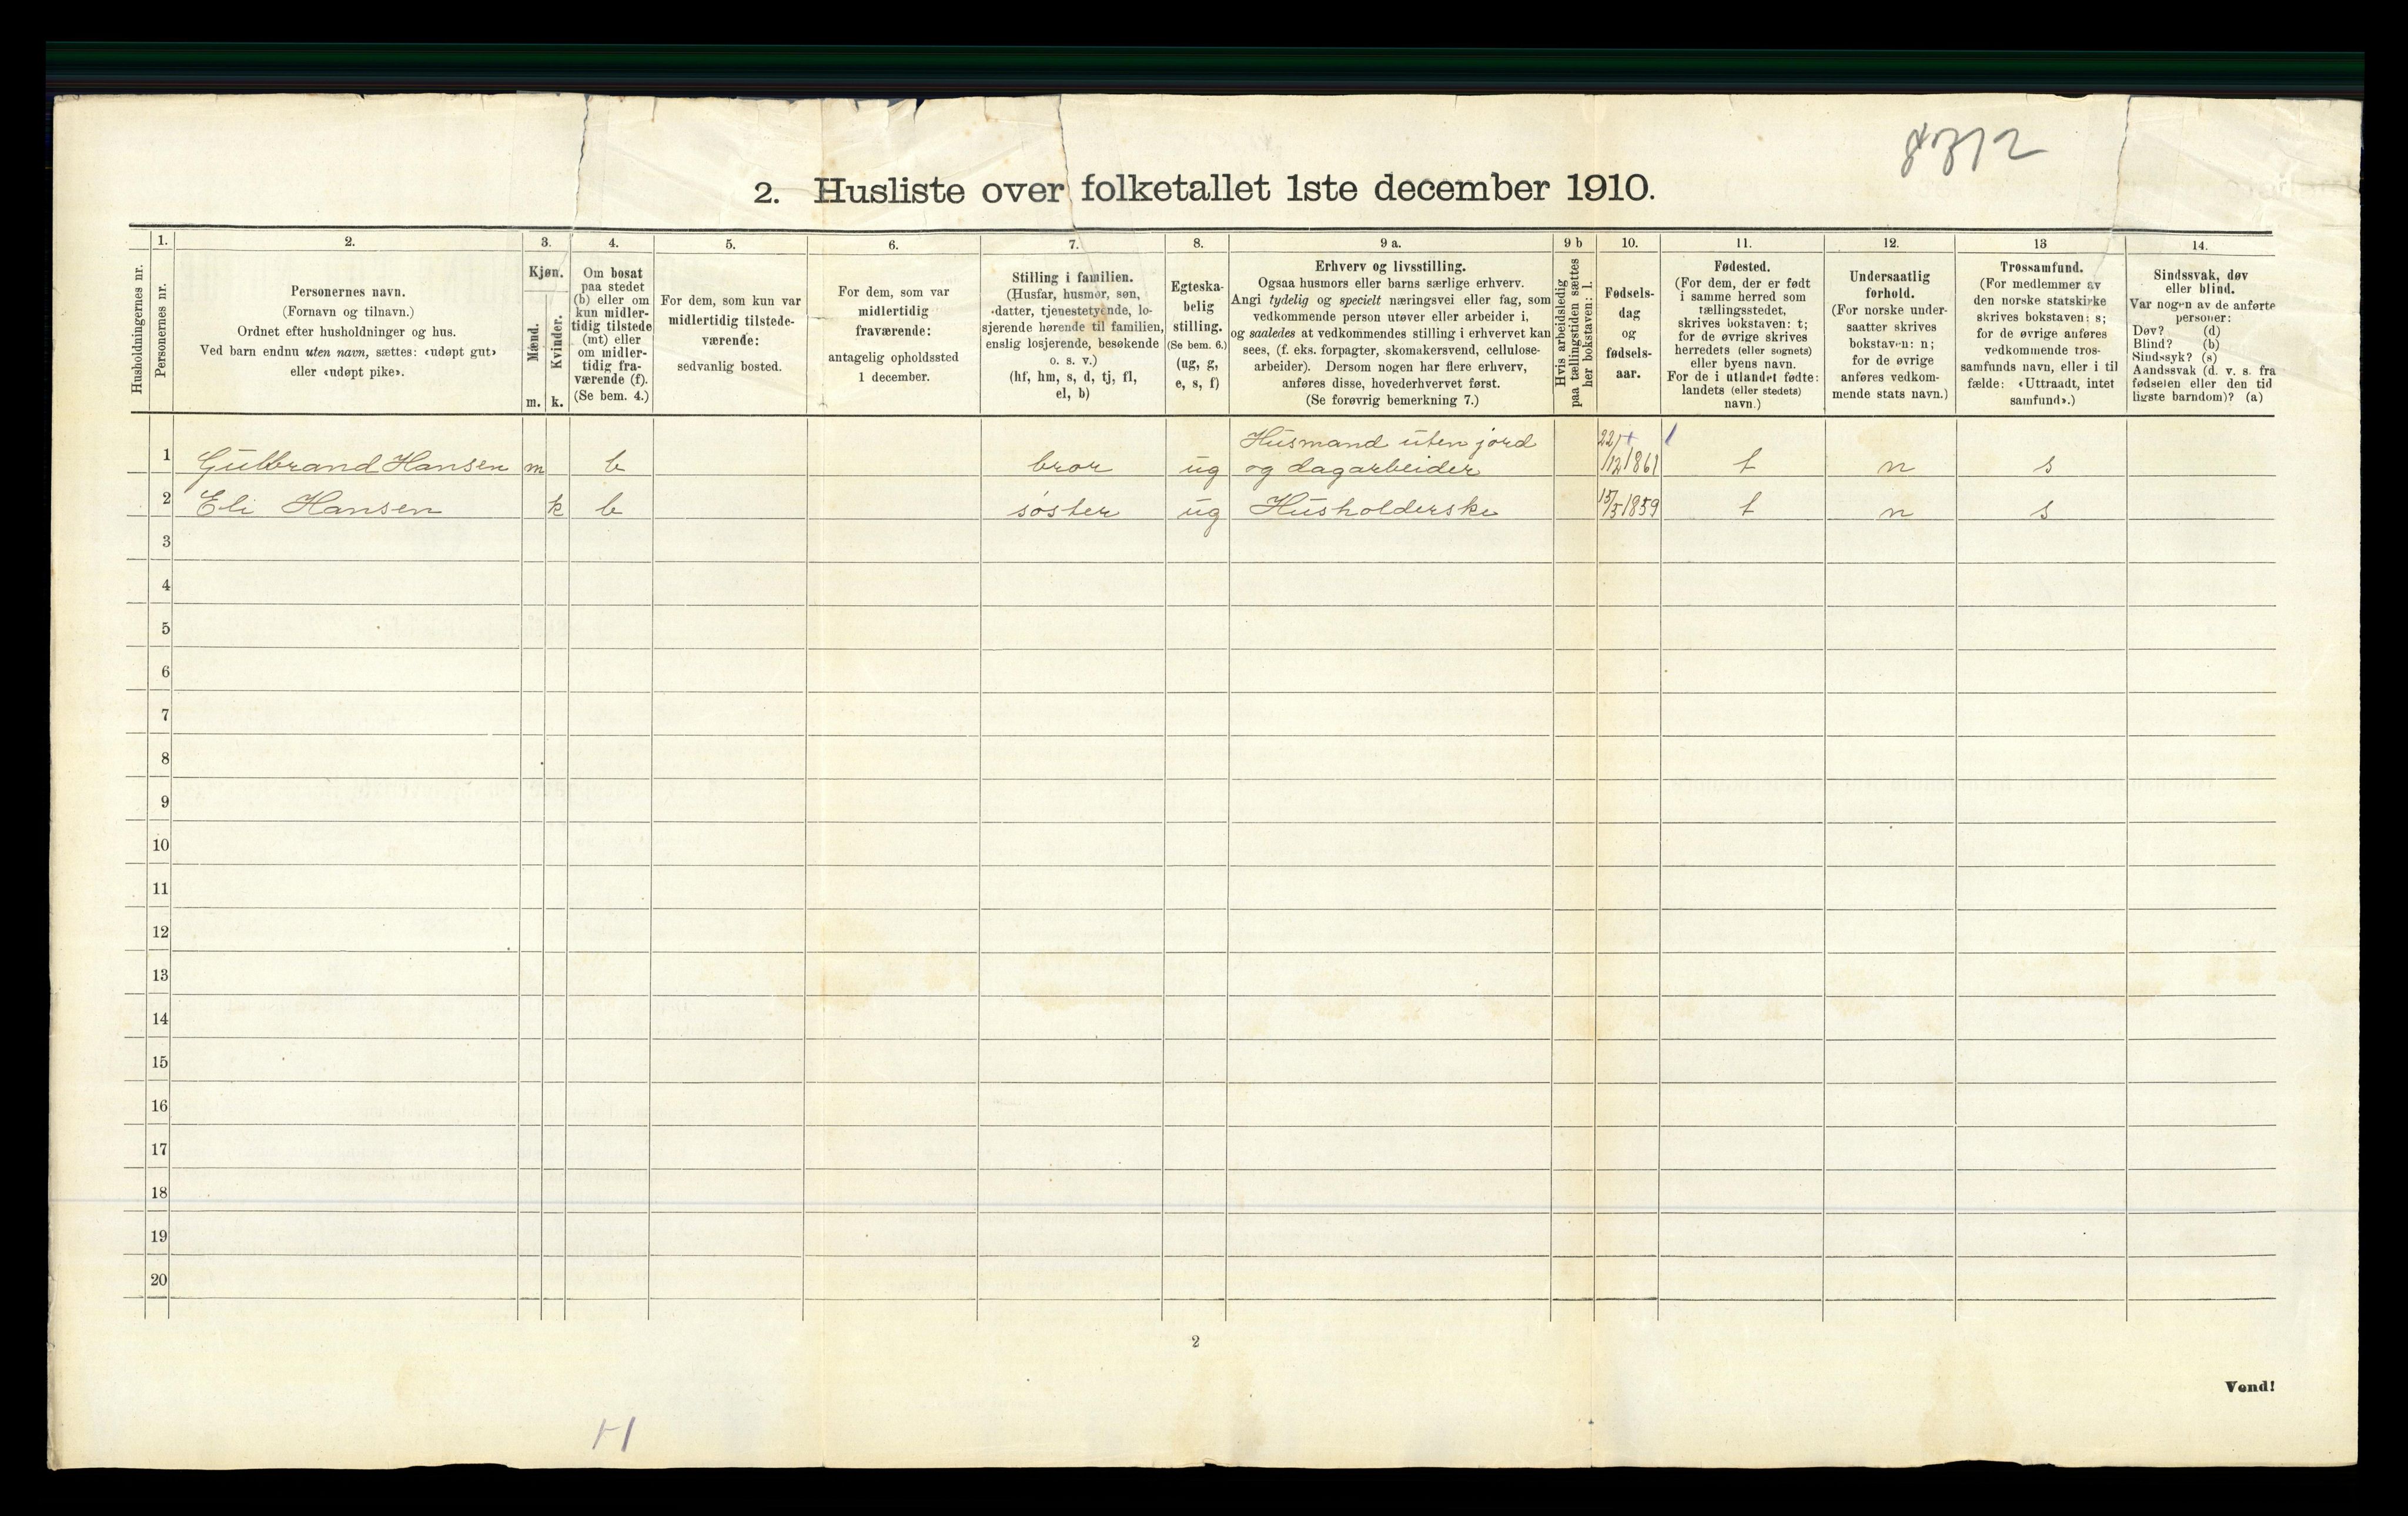 8312
2. Husliste over folketallet 1ste december 1910.
1. 2. 3. 4. 5. 6. 7. 8. 9 a. 9 b 10. 11. 12. 13 14.
Husholdningernes nr.
Personernes nr.
Personernes navn.
(Fornavn og tilnavn.)
Ordnet efter husholdninger og hus.
Ved barn endnu uten navn, sættes: «udøpt gut»
eller «udøpt pike».
Kjøn.
Mænd.
Kvinder.
m. k.
Om bosat
paa stedet
(b) eller om
kun midler-
tidig tilstede
(mt) eller
om midler-
tidig fra-
værende (f).
(Se bem. 4.)
For dem, som kun var
midlertidig tilstede-
værende:
sedvanlig bosted.
For dem, som var
midlertidig
fraværende:
antagelig opholdssted
1 december.
Stilling i familien.
(Husfar, husmor, søn,
datter, tjenestetyende, lo-
sjerende hørende til familien,
enslig losjerende, besøkende
o. s. v.)
(hf, hm, s, d, tj, fl,
el, b)
Egteska-
belig
stilling.
(Se bem. 6.)
(ug, g,
e, s, f)
Erhverv og livsstilling.
Ogsaa husmors eller barns særlige erhverv.
Angi tydelig og specielt næringsvei eller fag, som
vedkommende person utøver eller arbeider i,
og saaledes at vedkommendes stilling i erhvervet kan
sees, (f. eks. forpagter, skomakersvend, cellulose-
arbeider). Dersom nogen har flere erhverv,
anføres disse, hovederhvervet først.
(Se forøvrig bemerkning 7.)
Hvis arbeidsledig
paa tællingstiden sættes
her bokstaven: l.
Fødsels-
dag
og
fødsels-
aar.
Fødested.
(For dem, der er født
i samme herred som
tællingsstedet,
skrives bokstaven: t;
for de øvrige skrives
herredets (eller sognets)
eller byens navn.
For de i utlandet fødte:
landets (eller stedets)
navn.)
Undersaatlig
forhold.
(For norske under-
saatter skrives
bokstaven: n;
for de øvrige
anføres vedkom-
mende stats navn.)
Trossamfund.
(For medlemmer av
den norske statskirke
skrives bokstaven: s;
for de øvrige anføres
vedkommende tros-
samfunds navn, eller i til
fælde: «Uttraadt, intet
samfund».)
Sindssvak, døv
eller blind.
Var nogen av de anførte
personer:
Døv? (d)
Blind? (b)
Sindssyk? (s)
Aandssvak (d. v. s. fra
fødselen eller den tid
ligste barndom)? (a)
Husmand uten jord
1 Gulbrand Hansen m b bror ug og dagarbeider 22/12 1861 t n s
2 Eli Hansen k b søster ug Husholderske 15/5 1859 t n s
3
4
5
6
7
8
9
10
11
12
13
14
15
16
17
18
19
20
2
Vend!